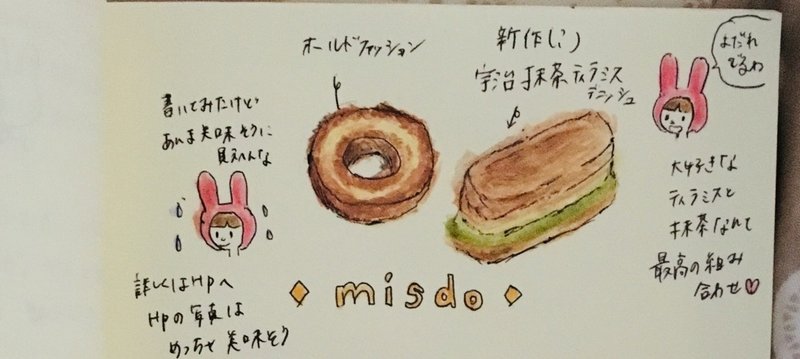 オールドファッション
新作(い)
宇治抹茶ティラミス
デニッシュ
よだれ
でるわ
書いてみたけど
あんま美味そうに
見えへんな
大好きな
ティラミスと
抹茶なんて
最高の組み
合わせ
詳しくはHPへ
HPの写真は
めっちゃ美味そう
misdo